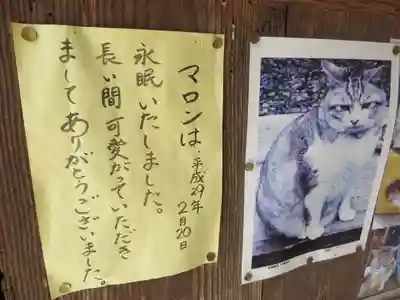 マロンは、平成29年
2月20日
永眠いたしました。
長い間可愛がっていただき
ましてありがとうございました。